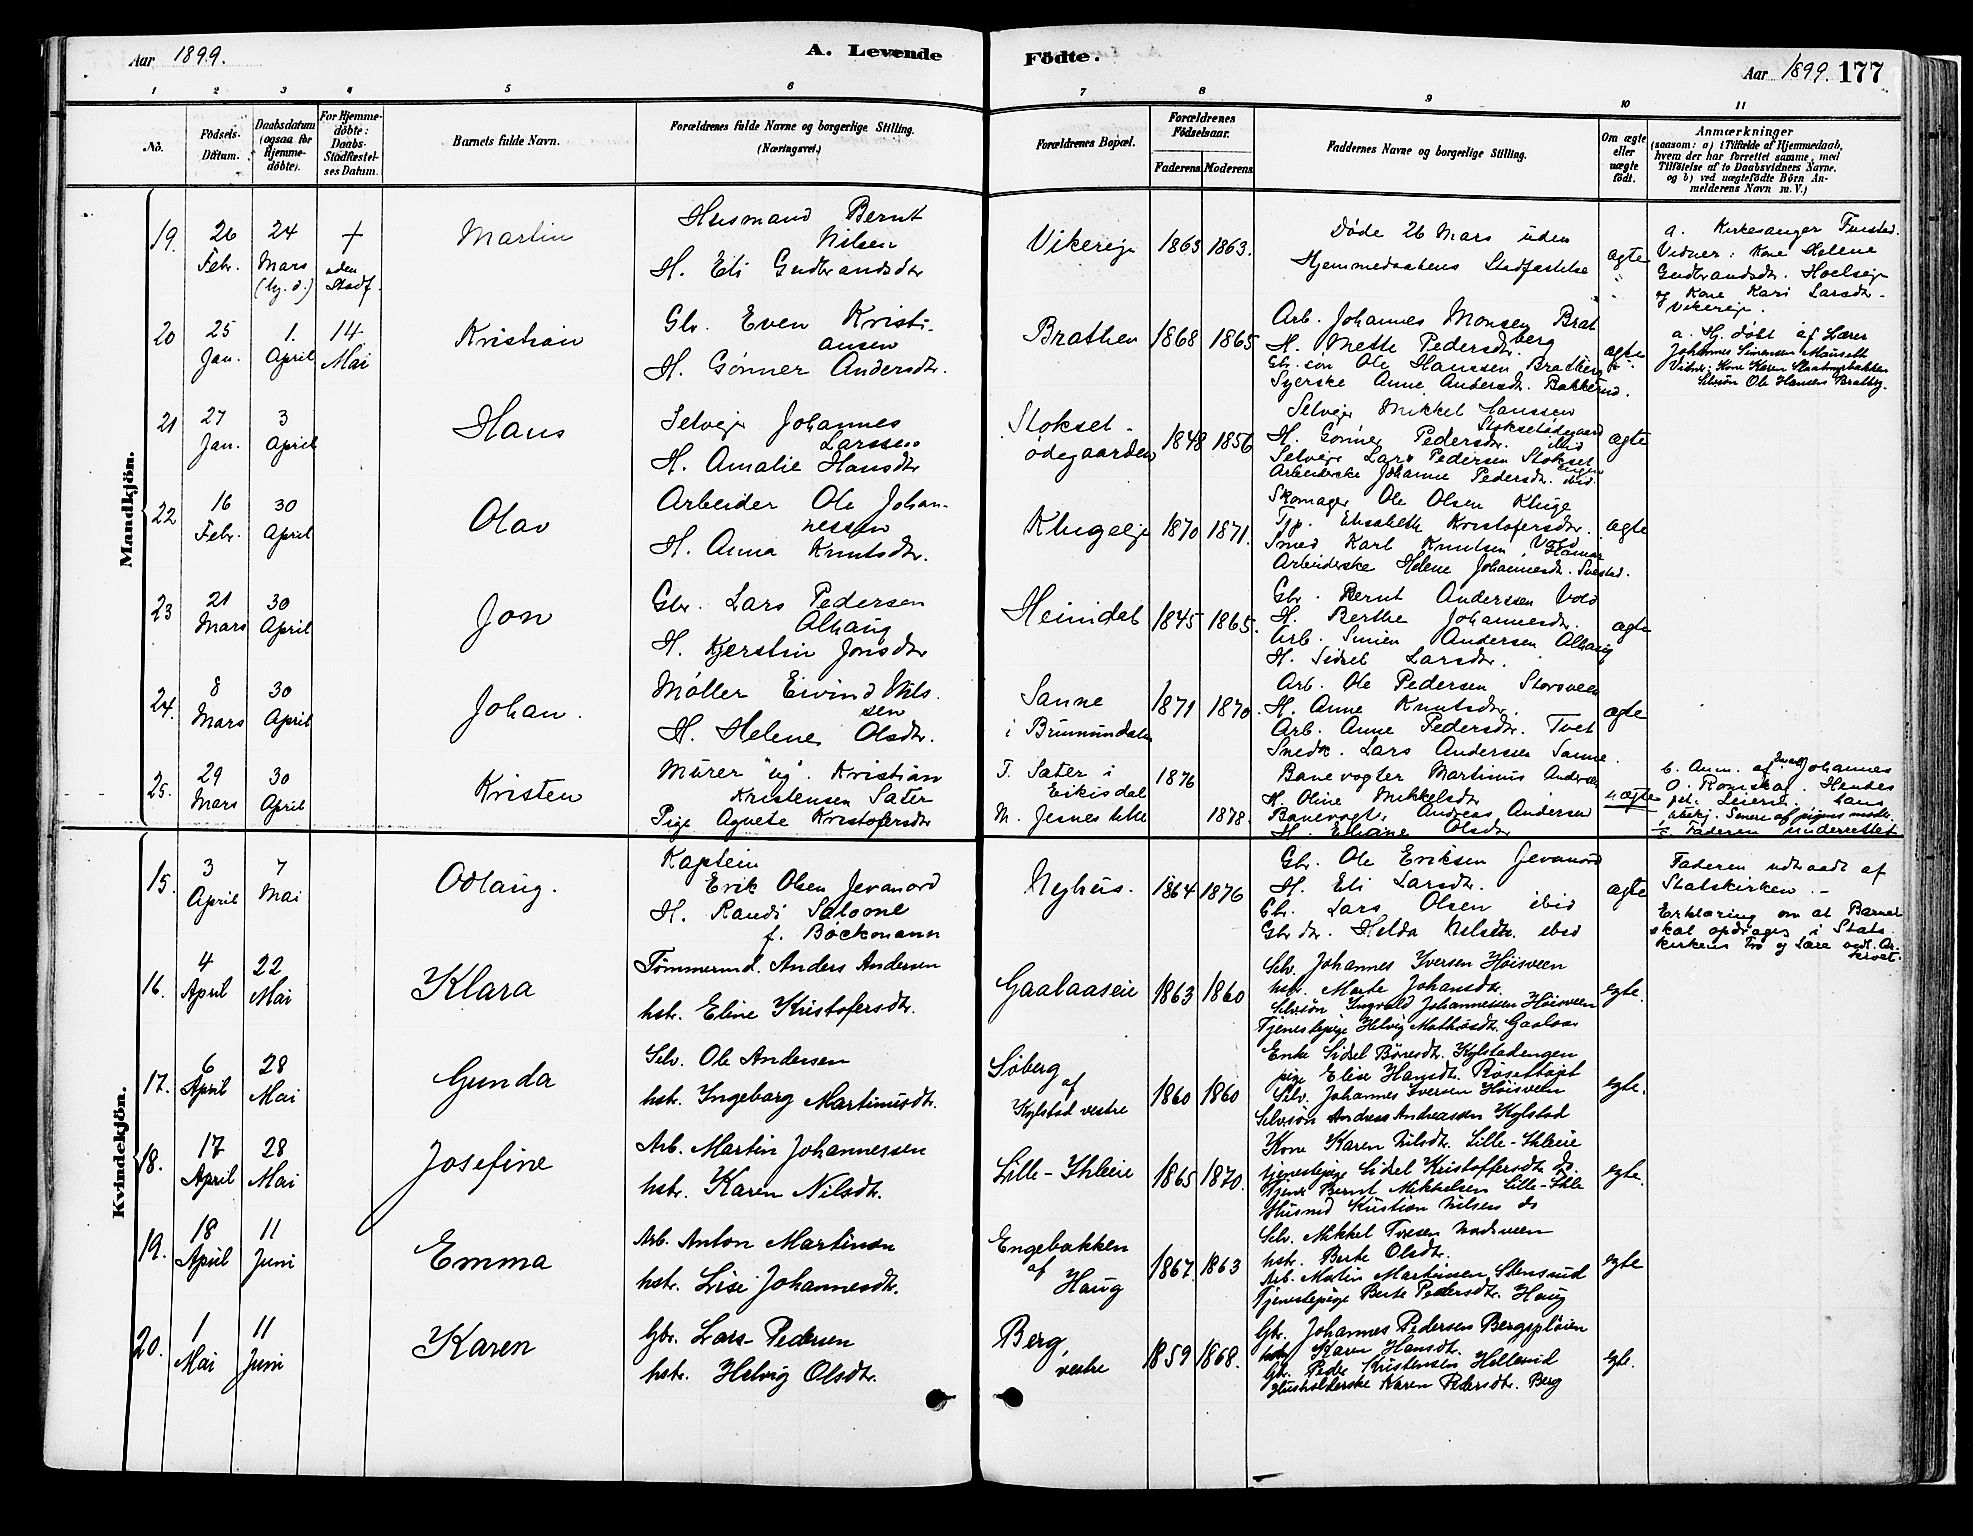 Aar 1899.
A. Levende
Födte.
Aar 1899. 177
1 2 3 4 5 6 7 8 9 10 11
No.
Födsels-Datum.
Daabsdatum (ogsaa for Hjemme-döbte).
For Hjemme-döbte: Daabs-Stadfæstel-ses Datum.
Barnets fulde Navn.
Forældrenes fulde Navne og borgerlige Stilling. (Næringsvei.)
Forældrenes Bopæl.
Forældrenes Födselsaar.
Faderens Moderens
Faddernes Navne og borgerlige Stilling.
Om ægte eller uægte födt.
Anmærkninger
(saasom: a) i Tilfælde af Hjemmedaab,
hvem der har forrettet samme, med
Tilföielse af to Daabsvidners Navne.
og b) ved uægtefödte Börn An-
melderens Navn m. V.)
Mandkjön.
19. 26 Febr. 24 Mars (hj. d.) + uden Stadf.
Martin
Husmand Bernt
Nilsen
H. Eli Gudbrandsdtr
Vikereje 1863 1863.
Døde 26 Mars uden
Hjemmedaabens Stadfæstelse
ægte
a. Kirkesanger Tuestad.
Vidner: Kone Helene
Gudbrandsdtr. Hoelseje
og Kone Kari Larsdtr.
Vikereje.
20 25 Jan. 1. April 14 Mai
Kristian
Gbr. Even Kristi-
ansen
H. Gønner Andersdtr.
Brathen 1868 1865
Arb. Johannes Monsen Brat
berg
H. Mette Pedersdtr.
Gbr. søn Ole Hanssen Bradberg
Syerske Anne Andersdtr. Bakkerud.
ægte
a. Hj. døbt af Lærer
Johannes Simensen Mauselt
Vidner: Kone Karen Slaatengsbakken
Selvsøn Ole Hansen Bratberg.
21 27 Jan. 3 April
Hans
Selvejer Johannes
Larssen
H. Amalie Hansdtr
Stokset-
ødegaarden 1848 1856
Selvejer Mikkel Hanssen
Stoksetødegaard
H. Gønner Pedersdtr. ibid
Selvejer Lars Pedersen Stokset
engen
Arbeiderske Johanne Pedersdtr. ibid.
ægte
22 16 Febr. 30 April
Olav
Arbeider Ole Johan-
nessen
H. Anna Knutsdtr.
Klugeeje 1870 1871.
Skomager Ole Olsen Kluge
Tjp. Elisabeth Kristofersdtr.
Smed Karl Knutsen Vold
Hamar
Arbeiderske Helene Johannesdtr. Svestad.
ægte
23 21 Mars 30 April
Jon
Gbr. Lars Pedersen
Alhaug
H. Kjerstin Jonsdtr
Heimdal 1845 1865.
Gbr. Bernt Anderssen Vold
H. Berthe Johannesdtr.
Arb. Simen Andersen Alhaug
H. Sidsel Larsdtr.
ægte
24. 8 Mars 30 April
Johan.
Møller Eivind Nils-
sen
H. Helene Olsdtr.
Sanne
i Brumunddalen 1871 1870.
Arb. Ole Pedersen Storsveen
H. Anne Knutsdtr.
Arb. Anne Pedersdtr. Tvet
Snedk. Lars Anderssen Sanne.
ægte
25. 29 Mars 30 April
Kristen
Murer "ug". Kristian
Kristensen Sater
Pige Agnete Kristofersdtr
F. Sater i
Eikisdal 1876
M. Jesnes lille 1878.
Banevogter Martinus Andersen
H. Oline Mikkelsdtr
Banevogter Andreas Andersen
H. Eliane Olsdtr
u. ægte
b. Anm. af Johannes
O. Romskol. Hendes
Senere af pigens moder.
Faderen underrettet
Kvindekjön.
15. 3 April 7 Mai
Odlaug.
Kaptein
Erik Olsen Jevanord
H. Randi Salome
f. Bøckmann
Nyhus. 1864 1876
Gbr. Ole Eriksen Jevanord
H. Eli Larsdtr.
Gbr. Lars Olsen ibid
Gbr dtr. Helda Nilsdtr. ibid
ægte
Faderen udtraadt af
Statskirken. –
Erklæring om at Barnet
skal opdrages i Stats-
kirkens Tro og Lære vedl. Ar-
kivet.
16. 4 April 22 Mai
Klara
Tømmermd. Anders Andersen
hstr. Eline Kristofersdtr.
Gaalaaseie 1863 1860
Selv. Johannes Iversen Höisveen
hstr. Marte Johansdtr.
Selvsön Ingvald Johannessen Höisveen
Tjenestepige Helvig Mathiasdtr. Gaalaas
egte.
17. 6 April 28 Mai
Gunda
Selv. Ole Andersen
hstr. Ingeborg Martinusdtr.
Söberg
af
Kylstad vestre 1860 1860
Enke Sidsel Böresdtr. Kylstadengen
pige Elise Hansdtr. Rosethöjet
Selv. Johannes Iversen Höisveen
Selvsön Andreas Andreassen Kylstad
egte.
18. 17 April 28 Mai
Josefine
Arb. Martin Johannessen
hstr. Karen Nilsdtr.
Lille-Ihleeie 1865 1870.
Kone Karen Nilsdtr. Lille-Ihleeie
tjenestepige Sidsel Kristoffersdtr. do.
Tjener Bernt Mikkelsen Lille-Ihle
Husmd Kristian Nilsen do
egte.
19. 18 April 11 Juni
Emma
Arb. Anton Martinsen
hstr. Lise Johannesdtr.
Engebakken
af
Haug 1867. 1863
Selv. Mikkel Iversen Nordsveen
hstr. Berte Olsdtr.
Arb. Martin Martinsen Stensrud
Tjenestepige Berte Pedersdtr. Haug
egte
20. 1 Mai 11 Juni
Karen
Gbr. Lars Pedersen
hstr. Helvig Olsdtr.
Berg,
vestre 1859 1868.
Gbr. Johannes Pedersen Bergsplöien
hstr Karen Hansdtr.
Gbr. Peder Kristensen Hellerud
Husholderske Karen Pedersdtr. Berg
egte.